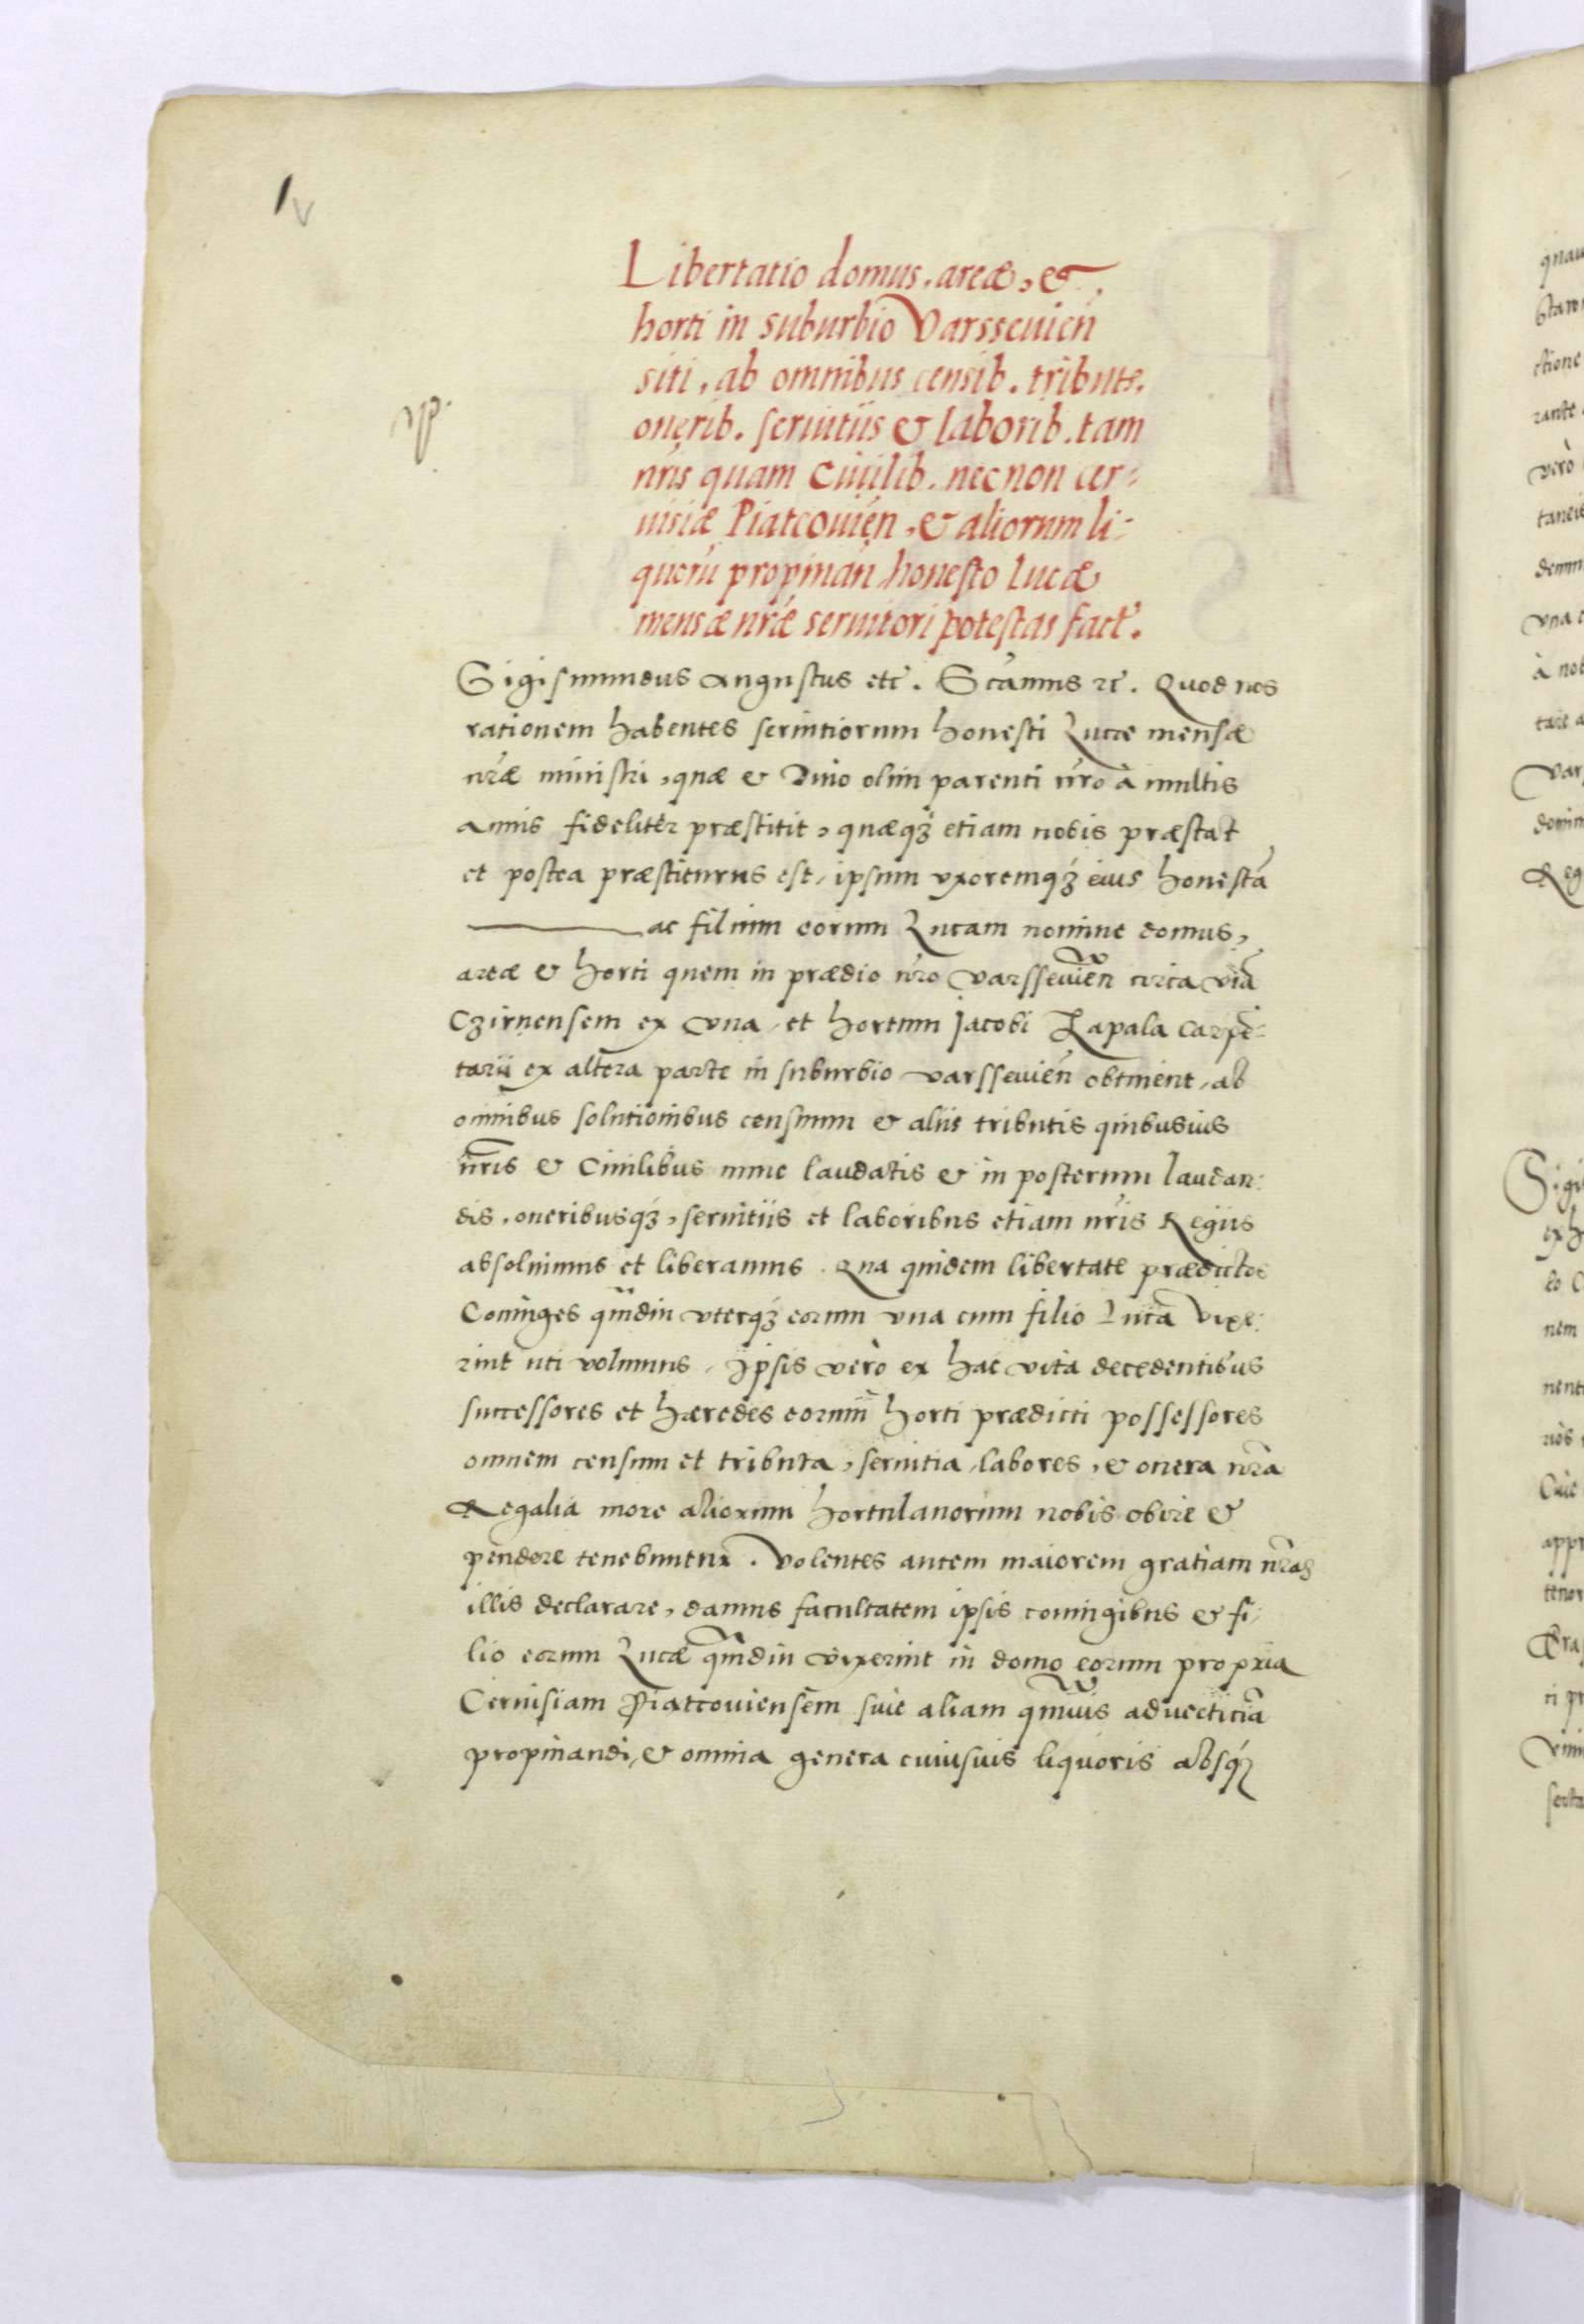 1v
Libertatio domus, areæ, et
horti in suburbio Varsseuień
siti, ab omnibus censib. tribut.
onerib. seruitiis et laborib. tam
nr̄is quam Ciuilib. necnon cer:
uisiæ Piatcouień, et aliorum li:
quorū propinań honesto Lucæ
mensæ nr̄æ seruitori potestas fact.
Sigismundus Augustus etc. Scām̄us rc. Quod nos
rationem habentes seruitiorum honesti Lucæ mensæ
nr̄æ ministri, quæ et Diuo olim parenti nr̄o à multis
annis fideliter præstitit, quæqꝫ etiam nobis præstat
et postea præstiturus est, ipsum vxoremqꝫ eius honestā
ac filium eorum Lucam nomine domus,
areæ et horti quem in prædio nr̄o Varsseuień circa viā
Czirnensem ex vna, et hortum Jacobi Lapala carpē:
tarii ex altera parte in suburbio varsseuień obtinent, ab
omnibus solutionibus censuum et aliis tributis quibusuis
nr̄is et Ciuilibus nunc laudatis et in posterum laudan:
dis, oneribusqꝫ, seruitiis et laboribus etiam nr̄is Regiis
absoluimus et liberamus. Qua quidem libertate prædictos
Coniuges qm̄diu vterqꝫ eorum vna cum filio Lucā vixe:
rint uti volumus, Ipsis verò ex hac vita decedentibus
successores et hæredes eorum horti prædicti possessores
omnem censum et tributa, seruitia, labores, et onera nr̄a
Regalia more aliorum hortulanorum nobis obire et
pendere tenebuntur. Volentes autem maiorem gratiam nr̄aꝫ
illis declarare, damus facultatem ipsis coniugibus et fi:
lio eorum Lucæ qm̄diu vixerint in domo eorum propria
Ceruisiam Piatcouiensem siue aliam qm̄uis aduecticiā
propinandi, et omnia genera cuiusuis liquoris absqꝫ